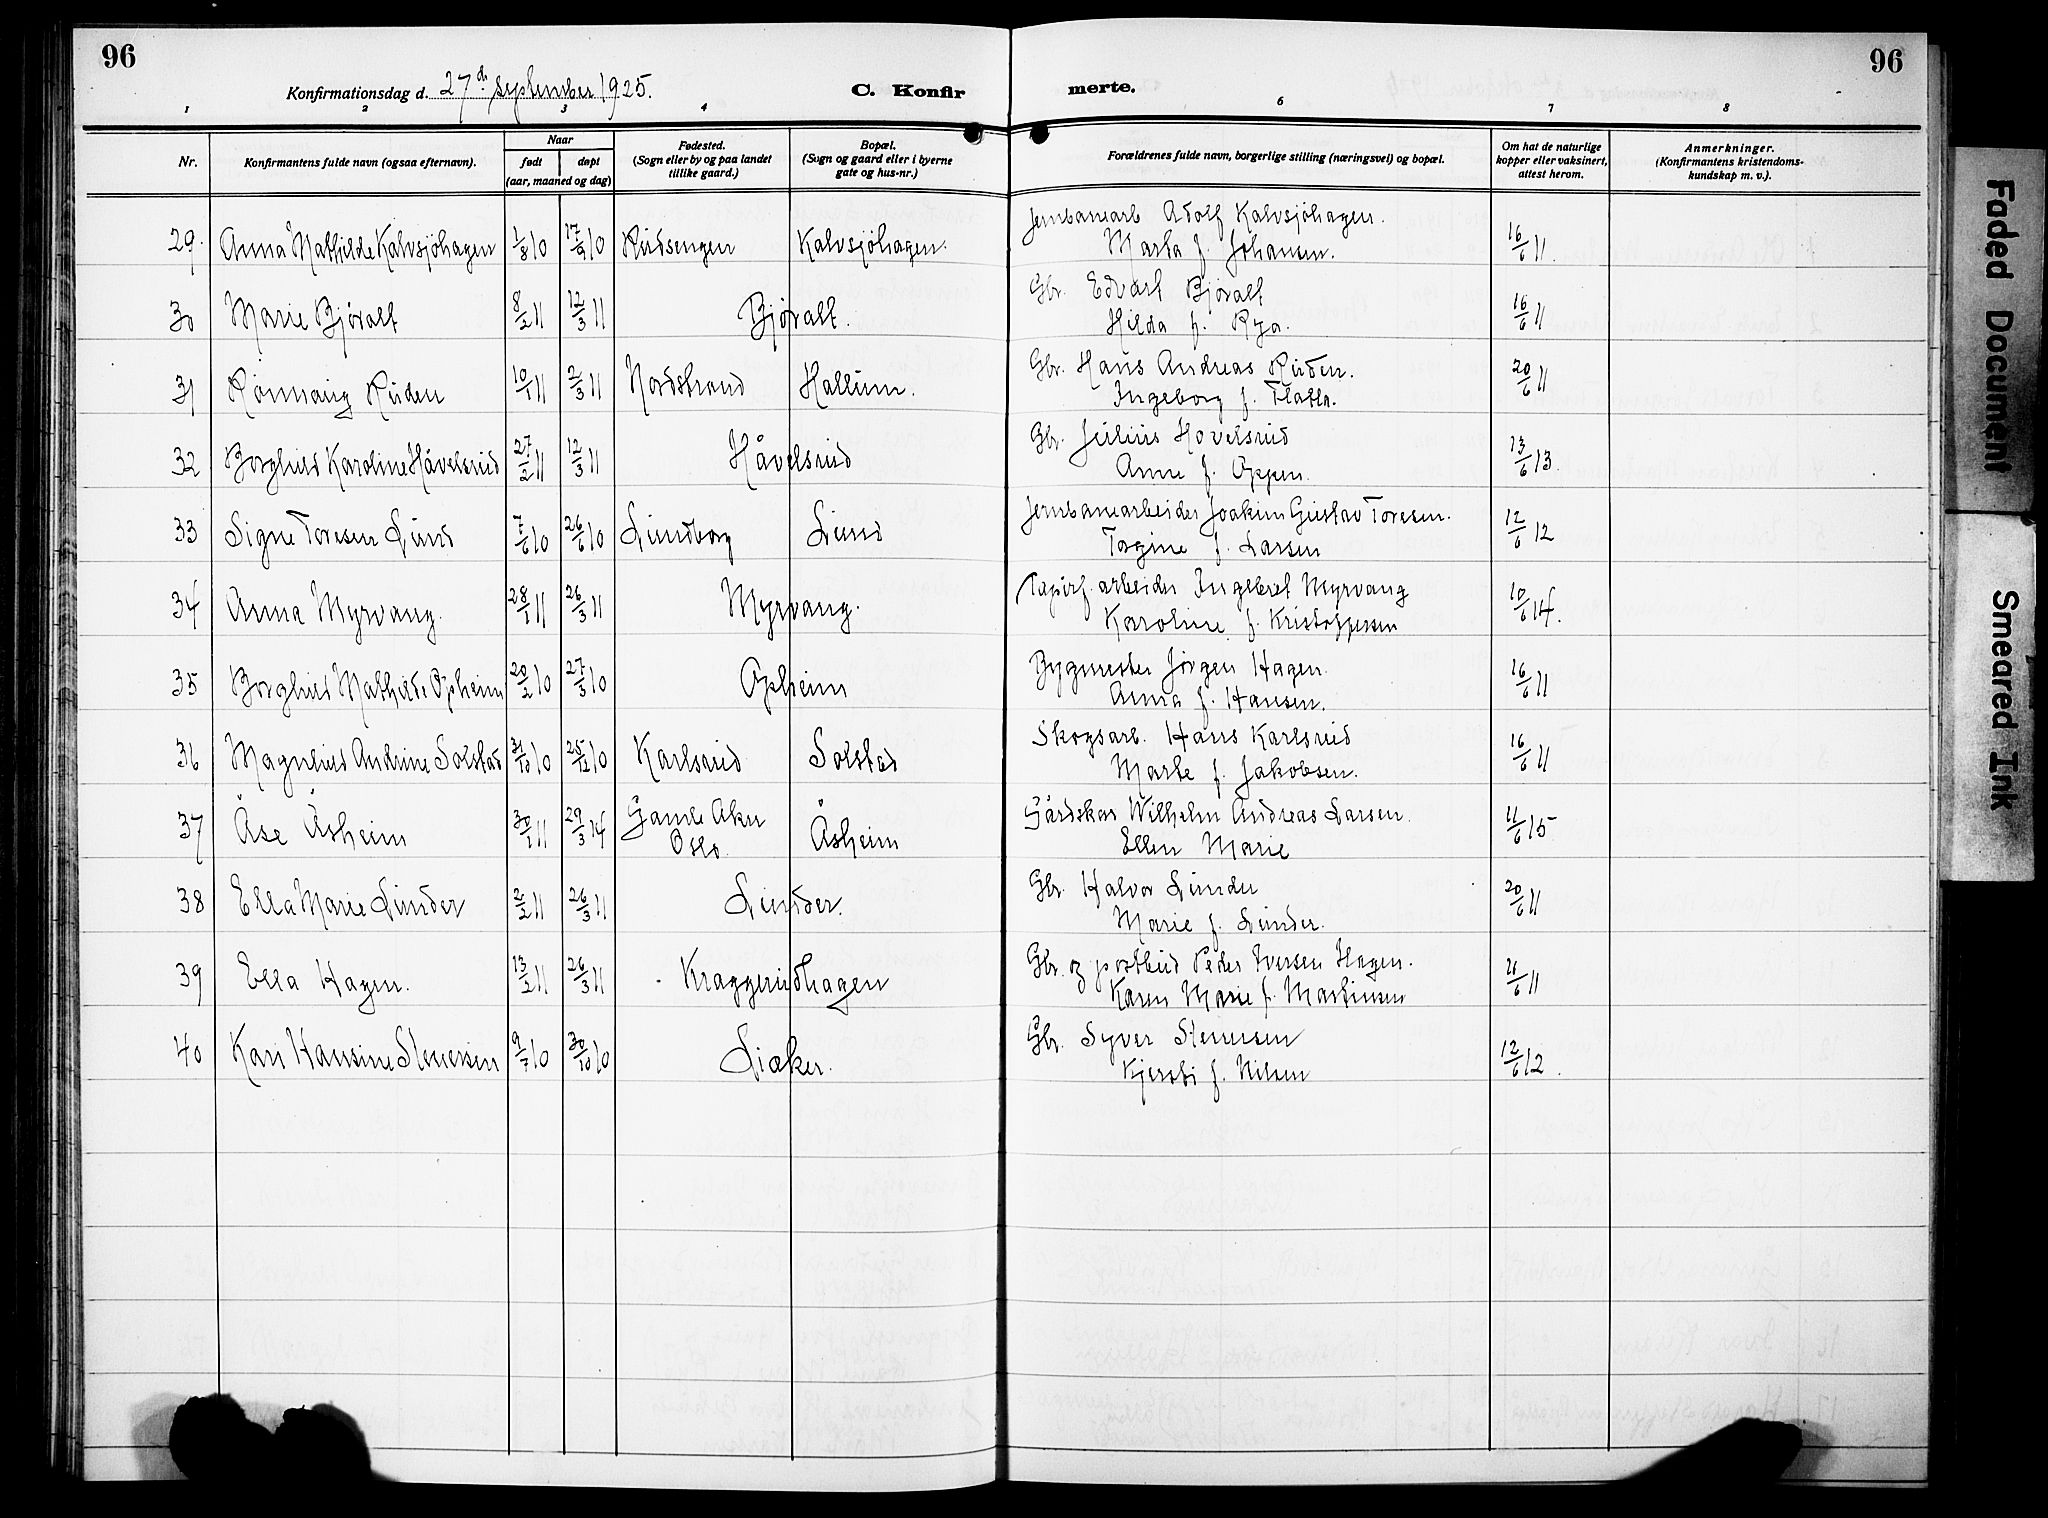 96
96
Konfirmationsdag d. 27de september 1925.
C. Konfirmerte.
1 2 3 4 6 7 8
Nr.
Konfirmantens fulde navn (ogsaa efternavn).
Naar
født døpt
(aar, maaned og dag)
Fødested.
(Sogn eller by og paa landet
tillike gaard.)
Bopæl.
(Sogn og gaard eller i byerne
gate og hus-nr.)
Forældrenes fulde navn, borgerlige stilling (næringsvei) og bopæl.
Om hat de naturlige
kopper eller vaksinert,
attest herom.
Anmerkninger.
(Konfirmantens kristendoms-
kundskap m. v.).
Jernbanearb Adolf Kalvsjöhagen.
29. Anna Mathilde Kalvsjöhagen 1/8 10 17/9 10 Rudsengen Kalvsjöhagen. Marta f. Johansen. 16/6 11.
Gbr. Edvart Bjøralt
30 Marie Bjøralt 8/2 11 12/3 11 Bjøralt. Hilda f. Rya. 16/6 11
Gbr. Hans Andreas Ruden.
31 Rönnaug Ruden 10/1 11 2/3 11 Nordstrand Hallum. Ingeborg f. Flatla. 20/6 11
Gbr. Julius Hovelsrud
32 Borghild Karoline Håvelsrud 27/2 11 12/3 11 Håvelsrud Anne f. Oppen. 13/6 13.
Jernbanearbeider Joakim Gustav Toresen.
33 Signe Toresen Lund 7/6 10 26/6 10 Lundborg Lund Torgine f. Larsen 12/6 12
Papirf. arbeider Ingebret Myrvang
34 Anna Myrvang. 28/1 11 26/3 11 Myrvang. Karoline f. Kristoffersen 10/6 14.
Bygmester Jörgen Hagen.
35 Borghild Mathilde Opheim 20/2 10 27/3 10 Opheim Anna f. Hansen. 16/6 11
Skogsarb. Hans Karlsrud
36 Magnhild Andrine Solstad 31/10 10 25/12 10 Karlsrud Solstad Marte f. Jakobsen. 16/6 11
Gårdskar Wilhelm Andreas Larsen.
37 Åse Åsheim 30/1 11 29/3 14 Gamle Aker Oslo. Åsheim Ellen Marie 11/6 15
Gbr. Halvor Lunder
38 Ella Marie Lunder 2/2 11 26/3 11 Lunder. Marie f. Lunder. 20/6 11
Gbr. og postbud Peder Iversen Hagen.
39 Ella Hagen. 13/2 11 26/3 11 Kraggerudhagen Karen Marie f. Martinsen 21/6 11
Gbr. Syver Stenersen
40 Kari Hansine Stenersen 9/7 10 30/10 10 Liaker. Kjersti f. Nilsen 12/6 12.
Faded Document
Smeared Ink